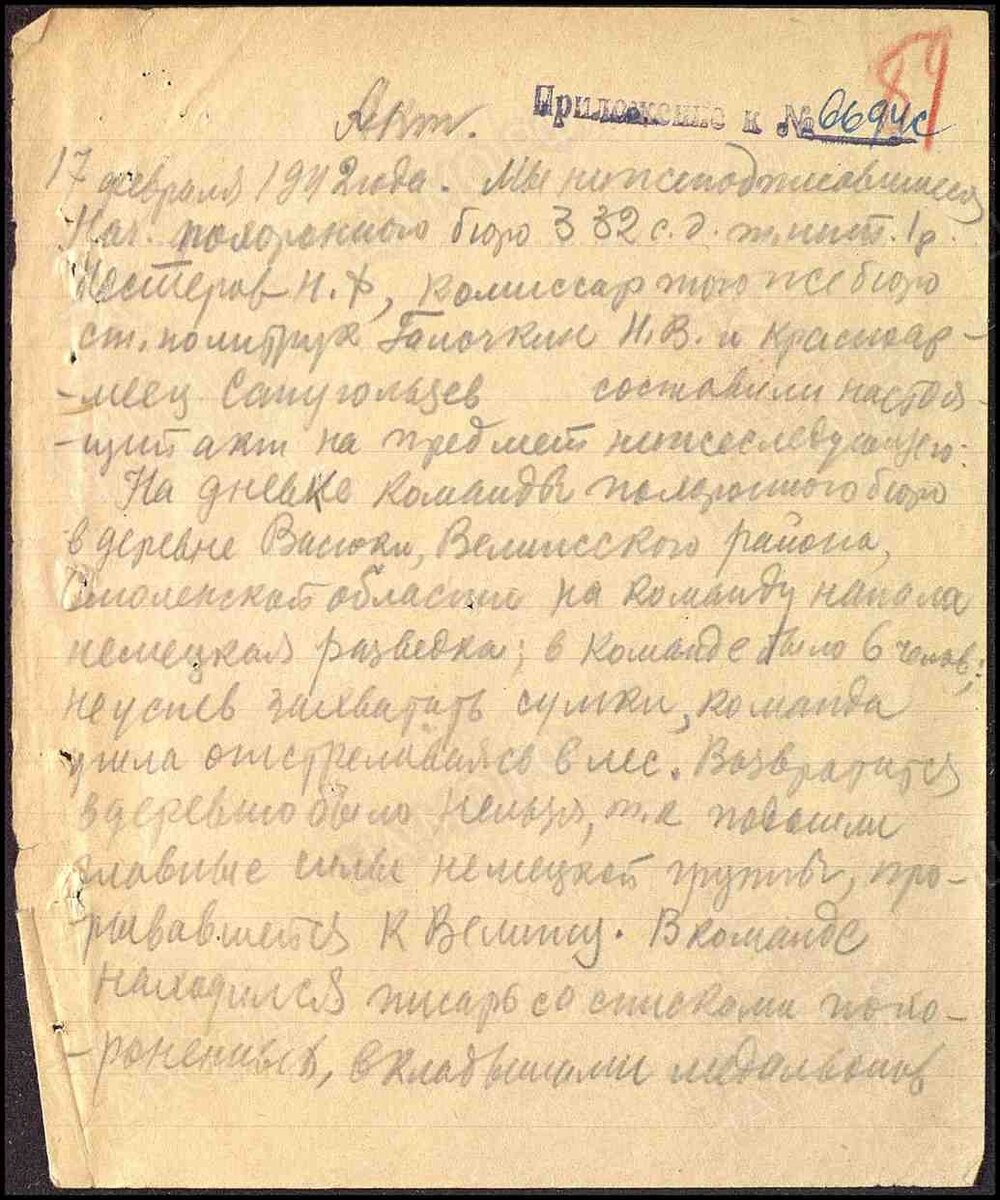 89
Приложение к № 6694с
Акт.
17 февраля 1942 года. Мы нижеподписавшиеся
Нач. похоронного бюро 332 с.д. т. инт. 1 р.
Нестеров Н.Ф, комиссар того же бюро
ст. политрук Галочкин Н.В. и красноар-
-меец Сапугольцев составили настоя-
-щий акт на предмет нижеследующего:
На дневке команды похоронного бюро
в деревне Васюки, Велижского района,
Смоленской области на команду напала
немецкая разведка; в команде было 6 челов;
не успев захватить сумки, команда
ушла отстреливаясь в лес. Возвратится
в деревню было нельзя, т.к подошли
главные силы немецкой группы, про-
рывавшейся к Велижу. В команде
находился писарь со списками похо-
-роненных, вкладышами медальонов